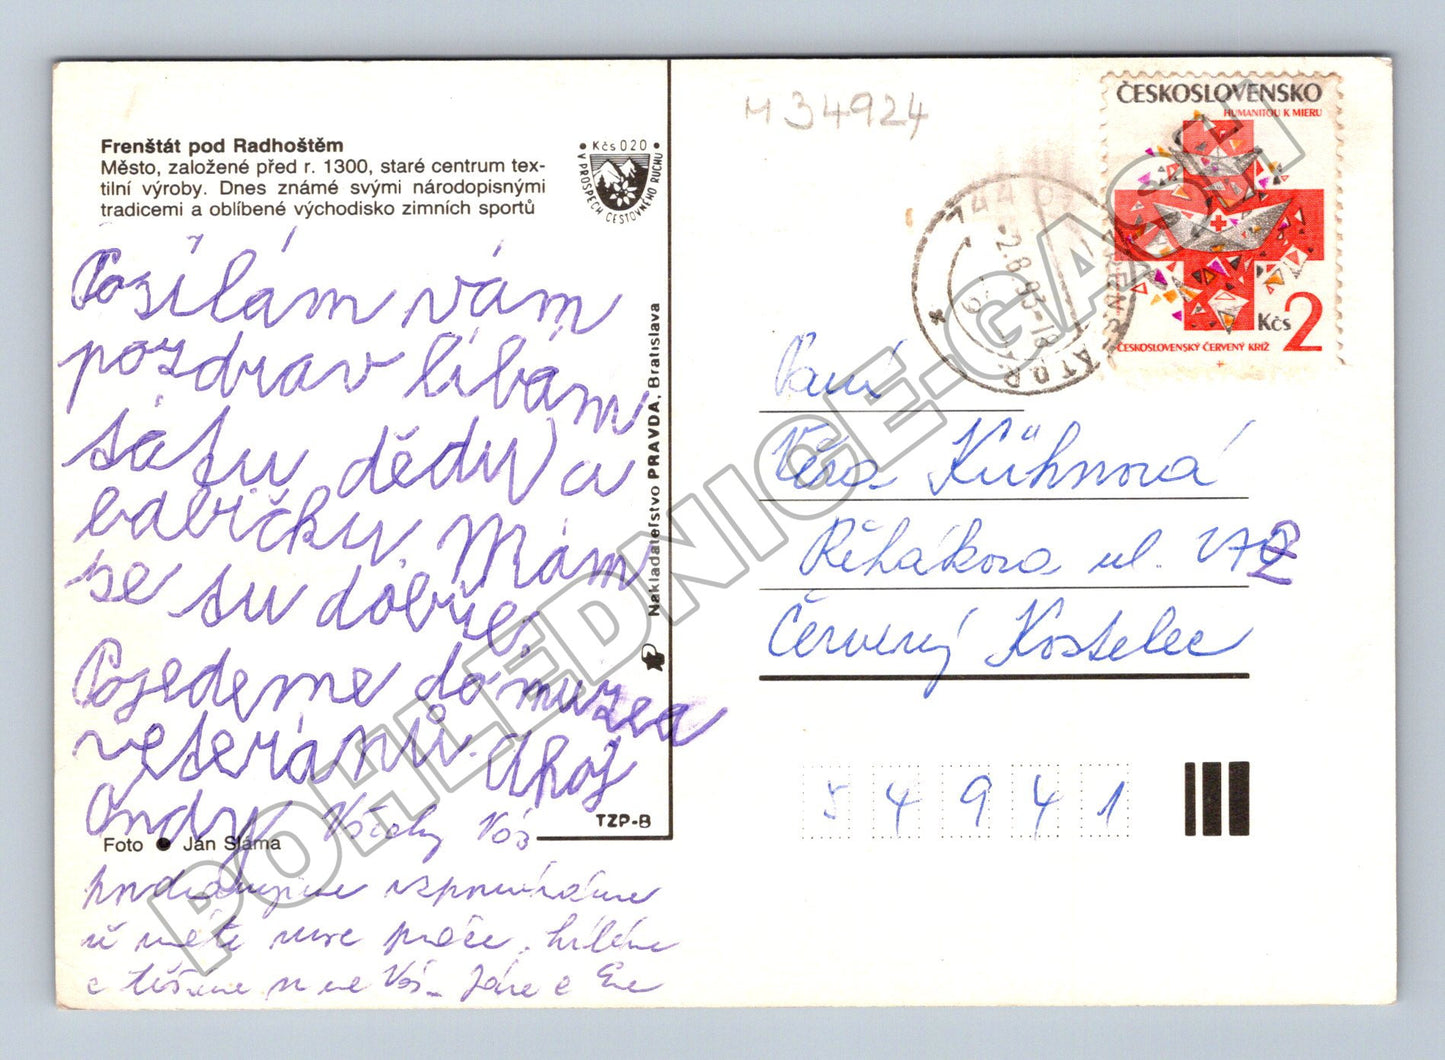 Frenštát pod Radhoštěm
Město, založené před r. 1300, staré centrum tex-
tilní výroby. Dnes známé svými národopisnými
tradicemi a oblíbené východisko zimních sportů
• Kčs 020 •
V PROSPECH CESTOVNÉHO RUCHU
Posílám vám
pozdrav líbám
tátu dědu a
babičku. Mám
se tu dobře.
Pojedeme do muzea
veteránů. Ahoj
Ondy Všechny Vás
pozdravujeme vzpomínáme
už máte more práce, líbáme
a těšíme se na Vás Jána a Eva
Foto • Ján Sláma
TZP-B
Nakladateľstvo PRAVDA, Bratislava
M 34924
744 01
-2.8.93-18
ČESKOSLOVENSKO
HUMANITOU K MIERU
Kčs 2
ČESKOSLOVENSKÝ ČERVENÝ KRÍŽ
Paní
Věra Kühnová
Řehákova ul.
Červený Kostelec
54941
POHLEDNICE-GASH